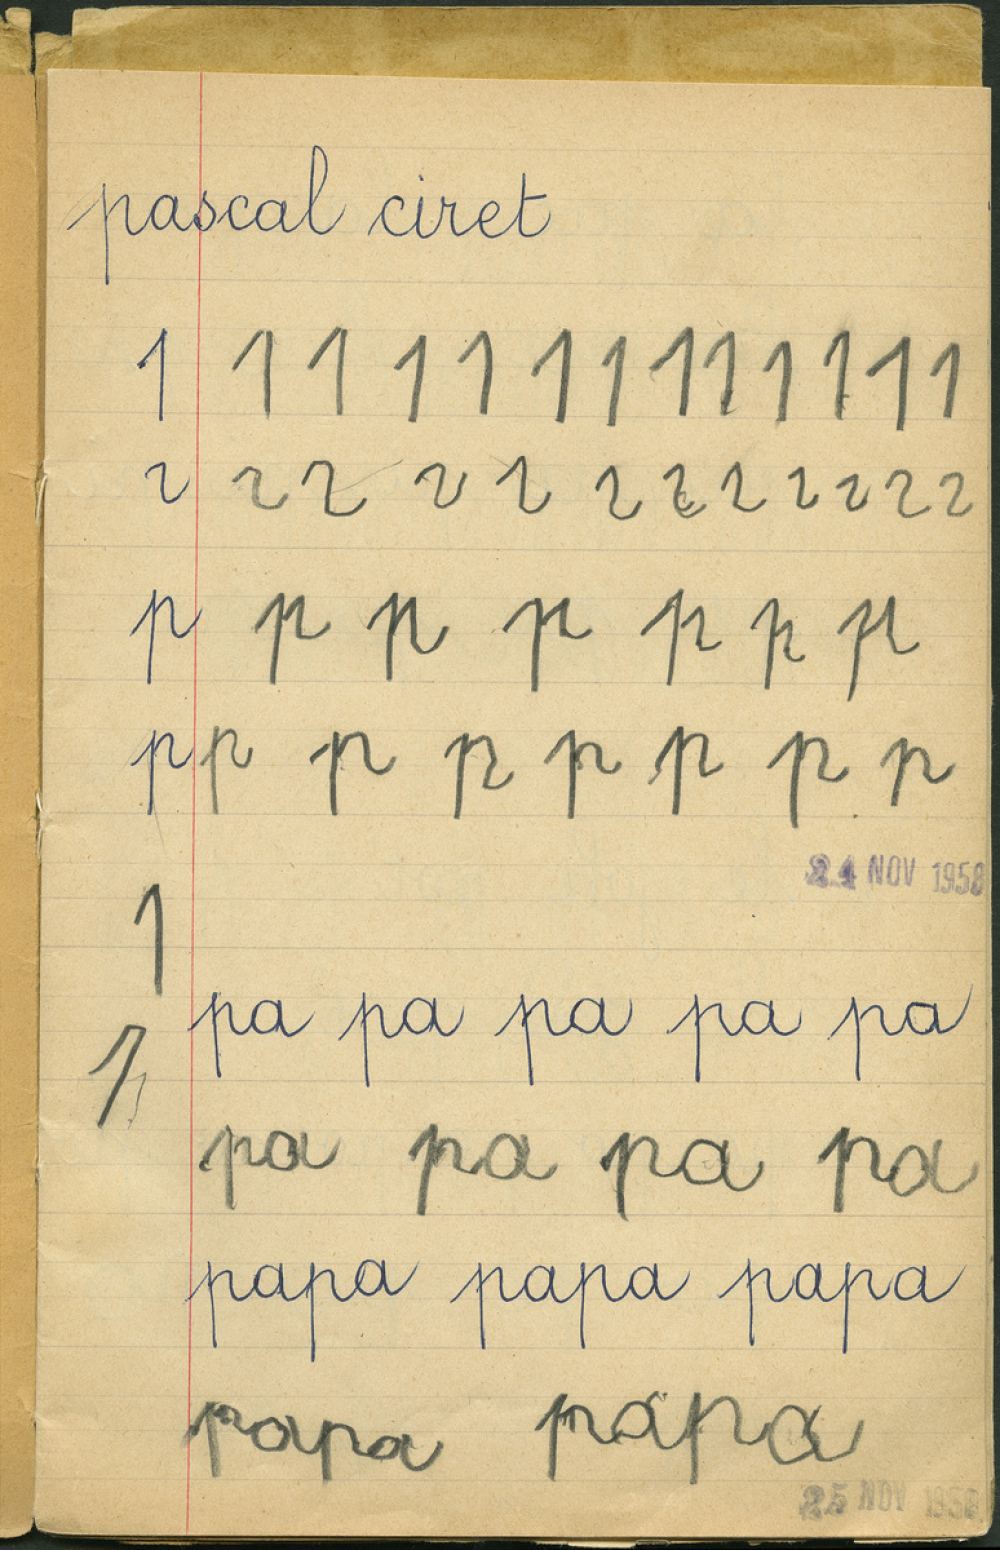 pascal ciret
1 1 1 1 1 1 1 1 1 1 1 1 1
2 2 2 2 2 2 2 2 2 2 2 2
p p p p p p p
p p p p p p p p
24 NOV 1958
1
pa pa pa pa pa
1
pa pa pa pa
papa papa papa
papa papa
25 NOV 1958